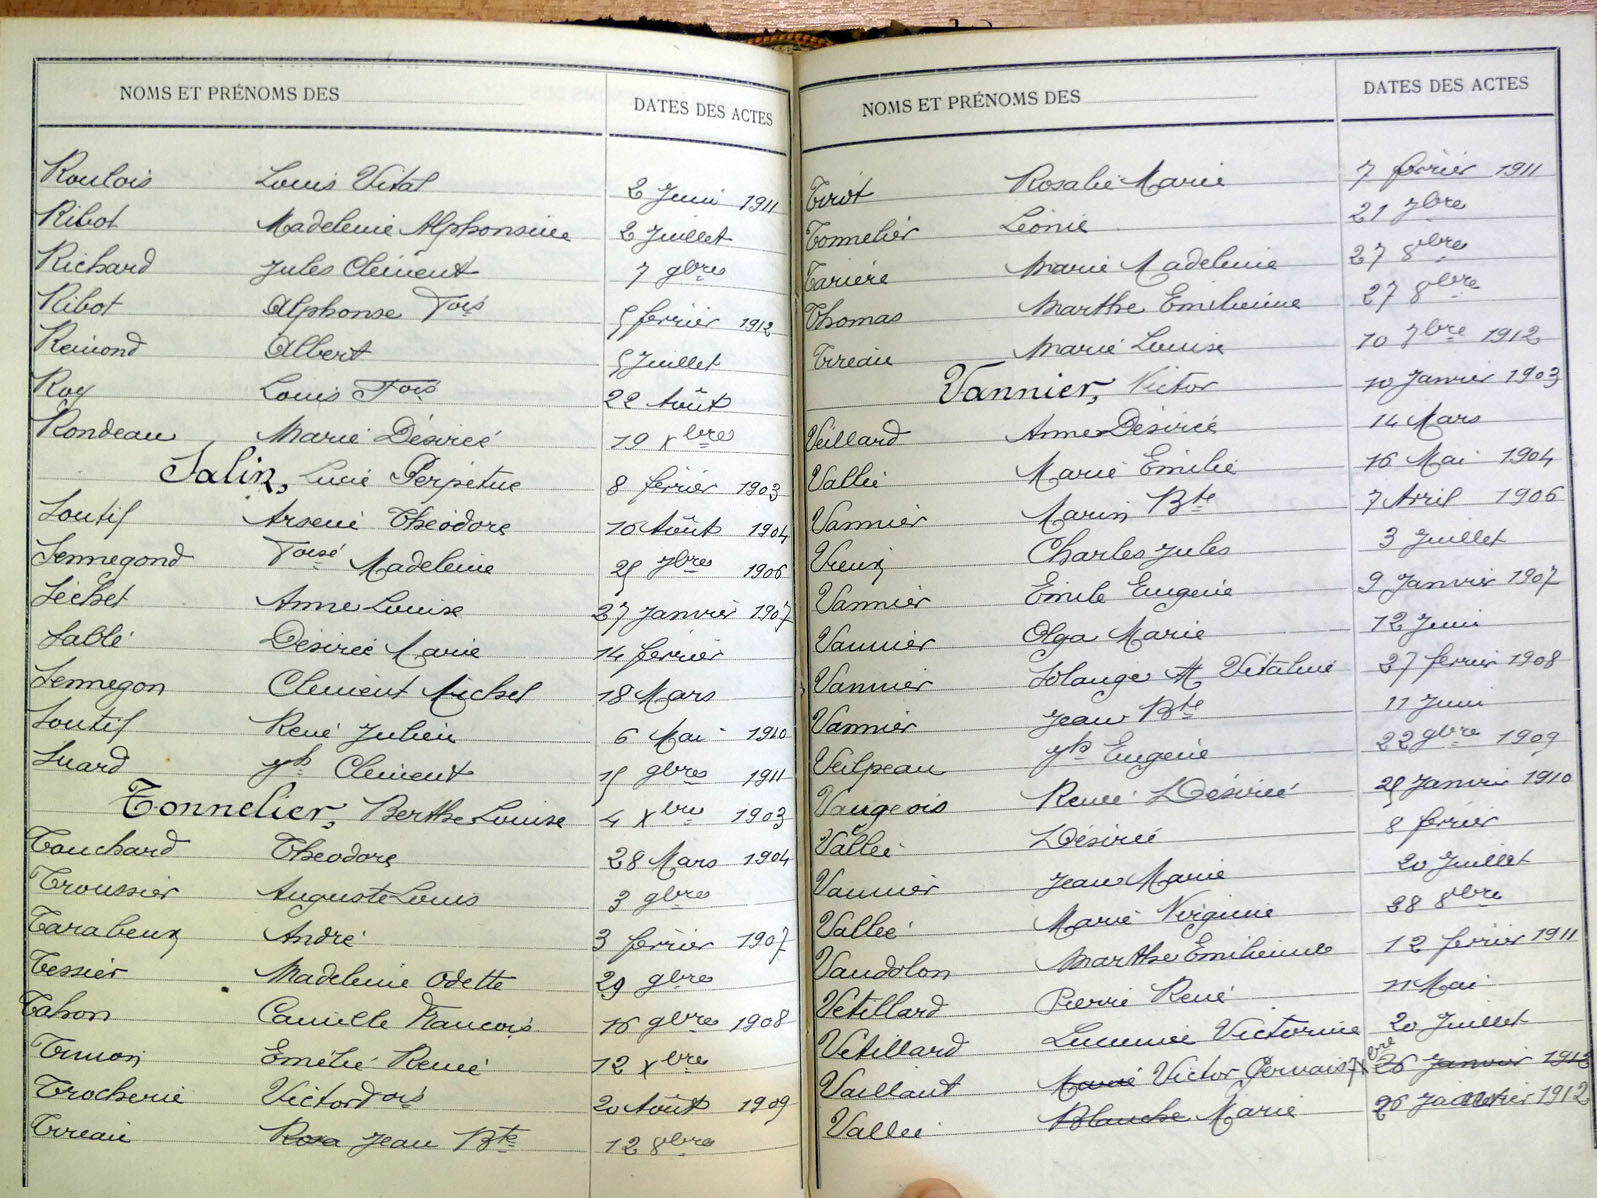 NOMS ET PRÉNOMS DES DATES DES ACTES
Roulois Louis Vital 2 Juin 1911
Ribot Madeleine Alphonsine 2 Juillet
Richard Jules Clément 7 9bre
Ribot Alphonse Fois 5 février 1912
Raimond Albert 5 Juillet
Roy Louis Fois 22 Août
Rondeau Marie Désirée 19 Xbre
Salin, Lucie Perpétue 8 février 1903
Soutif Arsène Théodore 10 Août 1904
Sennegond Foise Madeleine 25 7bre 1906
Séchet Anne Louise 27 Janvier 1907
Sablé Désirée Marie 14 février
Sennegon Clément Michel 18 Mars
Soutif René Julien 6 Mai 1910
Suard Jh Clément 15 9bre 1911
Tonnelier, Berthe Louise 4 Xbre 1903
Touchard Théodore 28 Mars 1904
Troussier Auguste Louis 3 9bre
Tarabeux André 3 février 1907
Tessier Madeleine Odette 29 9bre
Tahon Camille François 16 9bre 1908
Emélie Renée 12 Xbre
Trocherie Victor Fois 20 Août 1909
Tireau Rosa Jean Bte 12 8bre
NOMS ET PRÉNOMS DES DATES DES ACTES
Tirot Rosalie Marie 7 février 1911
Tonnelier Léonie 21 7bre
Tarière Marie Madeleine 27 8bre
Thomas Marthe Emilienne 27 8bre
Tireau Marie Louise 10 7bre 1912
Vannier, Victor 10 Janvier 1903
Veillard Anne Désirée 14 Mars
Vallée Marie Emilie 16 Mai 1904
Vannier Marin Bte 7 Avril 1906
Vieux Charles Jules 3 Juillet
Vannier Emile Eugène 9 Janvier 1907
Vannier Olga Marie 12 Juin
Vannier Solange M Vitaline 27 février 1908
Vannier Jean Bte 11 Juin
Veilpeau Jh Eugène 22 9bre 1909
Vaugeois Renée Désirée 25 Janvier 1910
Vallée Désirée 8 février
Vannier Jean Marie 20 Juillet
Vallée Marie Virginie 28 8bre
Vaudolon Marthe Emilienne 12 février 1911
Vétillard Pierre René 11 Mai
Vétillard Lucienne Victorine 20 Juillet
Vaillant Marie Victor Gervais 7 Xbre 26 Janvier 1912
Vallée Blanche Marie 26 Janvier 1912